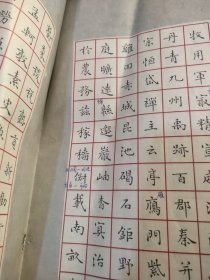 牧用軍最精宣威沙
丹青九州禹跡百郡秦并
宗恒岱禪主云亭鴈門紫
雞田赤城昆池碣石鉅野
庭曠遠緜邈巖岫杳冥治
於農務茲稼穡俶載南畝
藝黍稷稅熟貢新
孟軻敦素史魚
勞謙